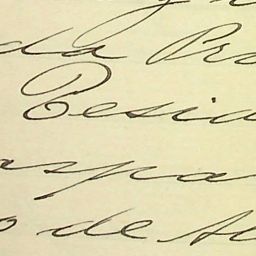 da Pro
Resid
aspa
o de Al